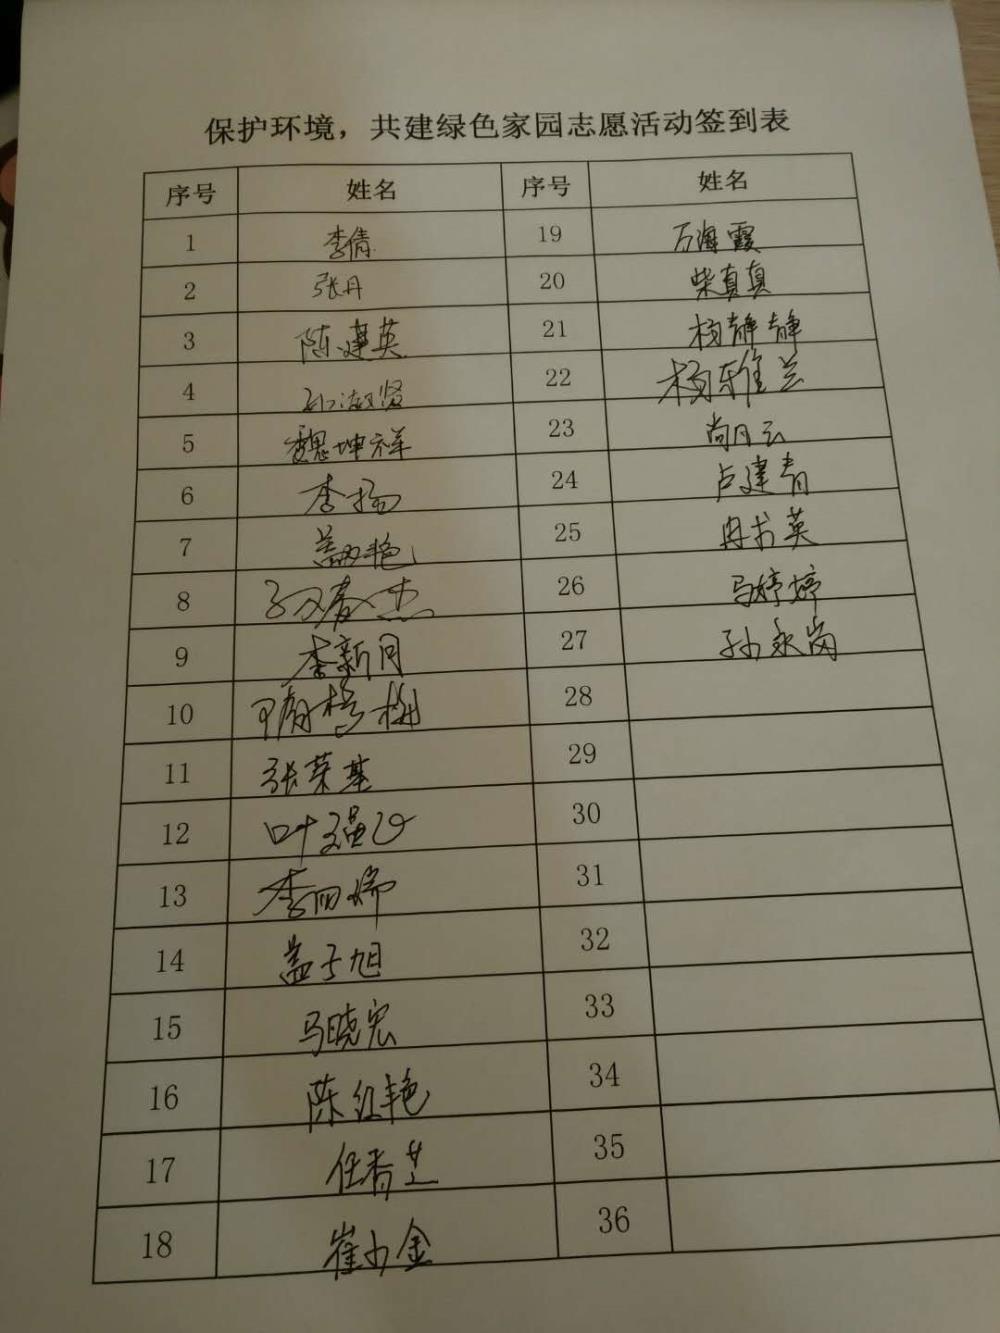 保护环境，共建绿色家园志愿活动签到表
序号 姓名 序号 姓名
1 李倩 19 万海霞
2 张丹 20 柴真真
3 陈建英 21 杨静静
4 孙淑贤 22 杨雅兰
5 魏坤祥 23 尚月云
6 李扬 24 卢建青
7 艳 25 冉书英
8 孙春杰 26 马婷婷
9 李新同 27 孙永岗
10 梅 28
11 张荣基 29
12 叶 30
13 李 31
14 盖子旭 32
15 马晓宏 33
16 陈红艳 34
17 任香芝 35
18 崔少金 36